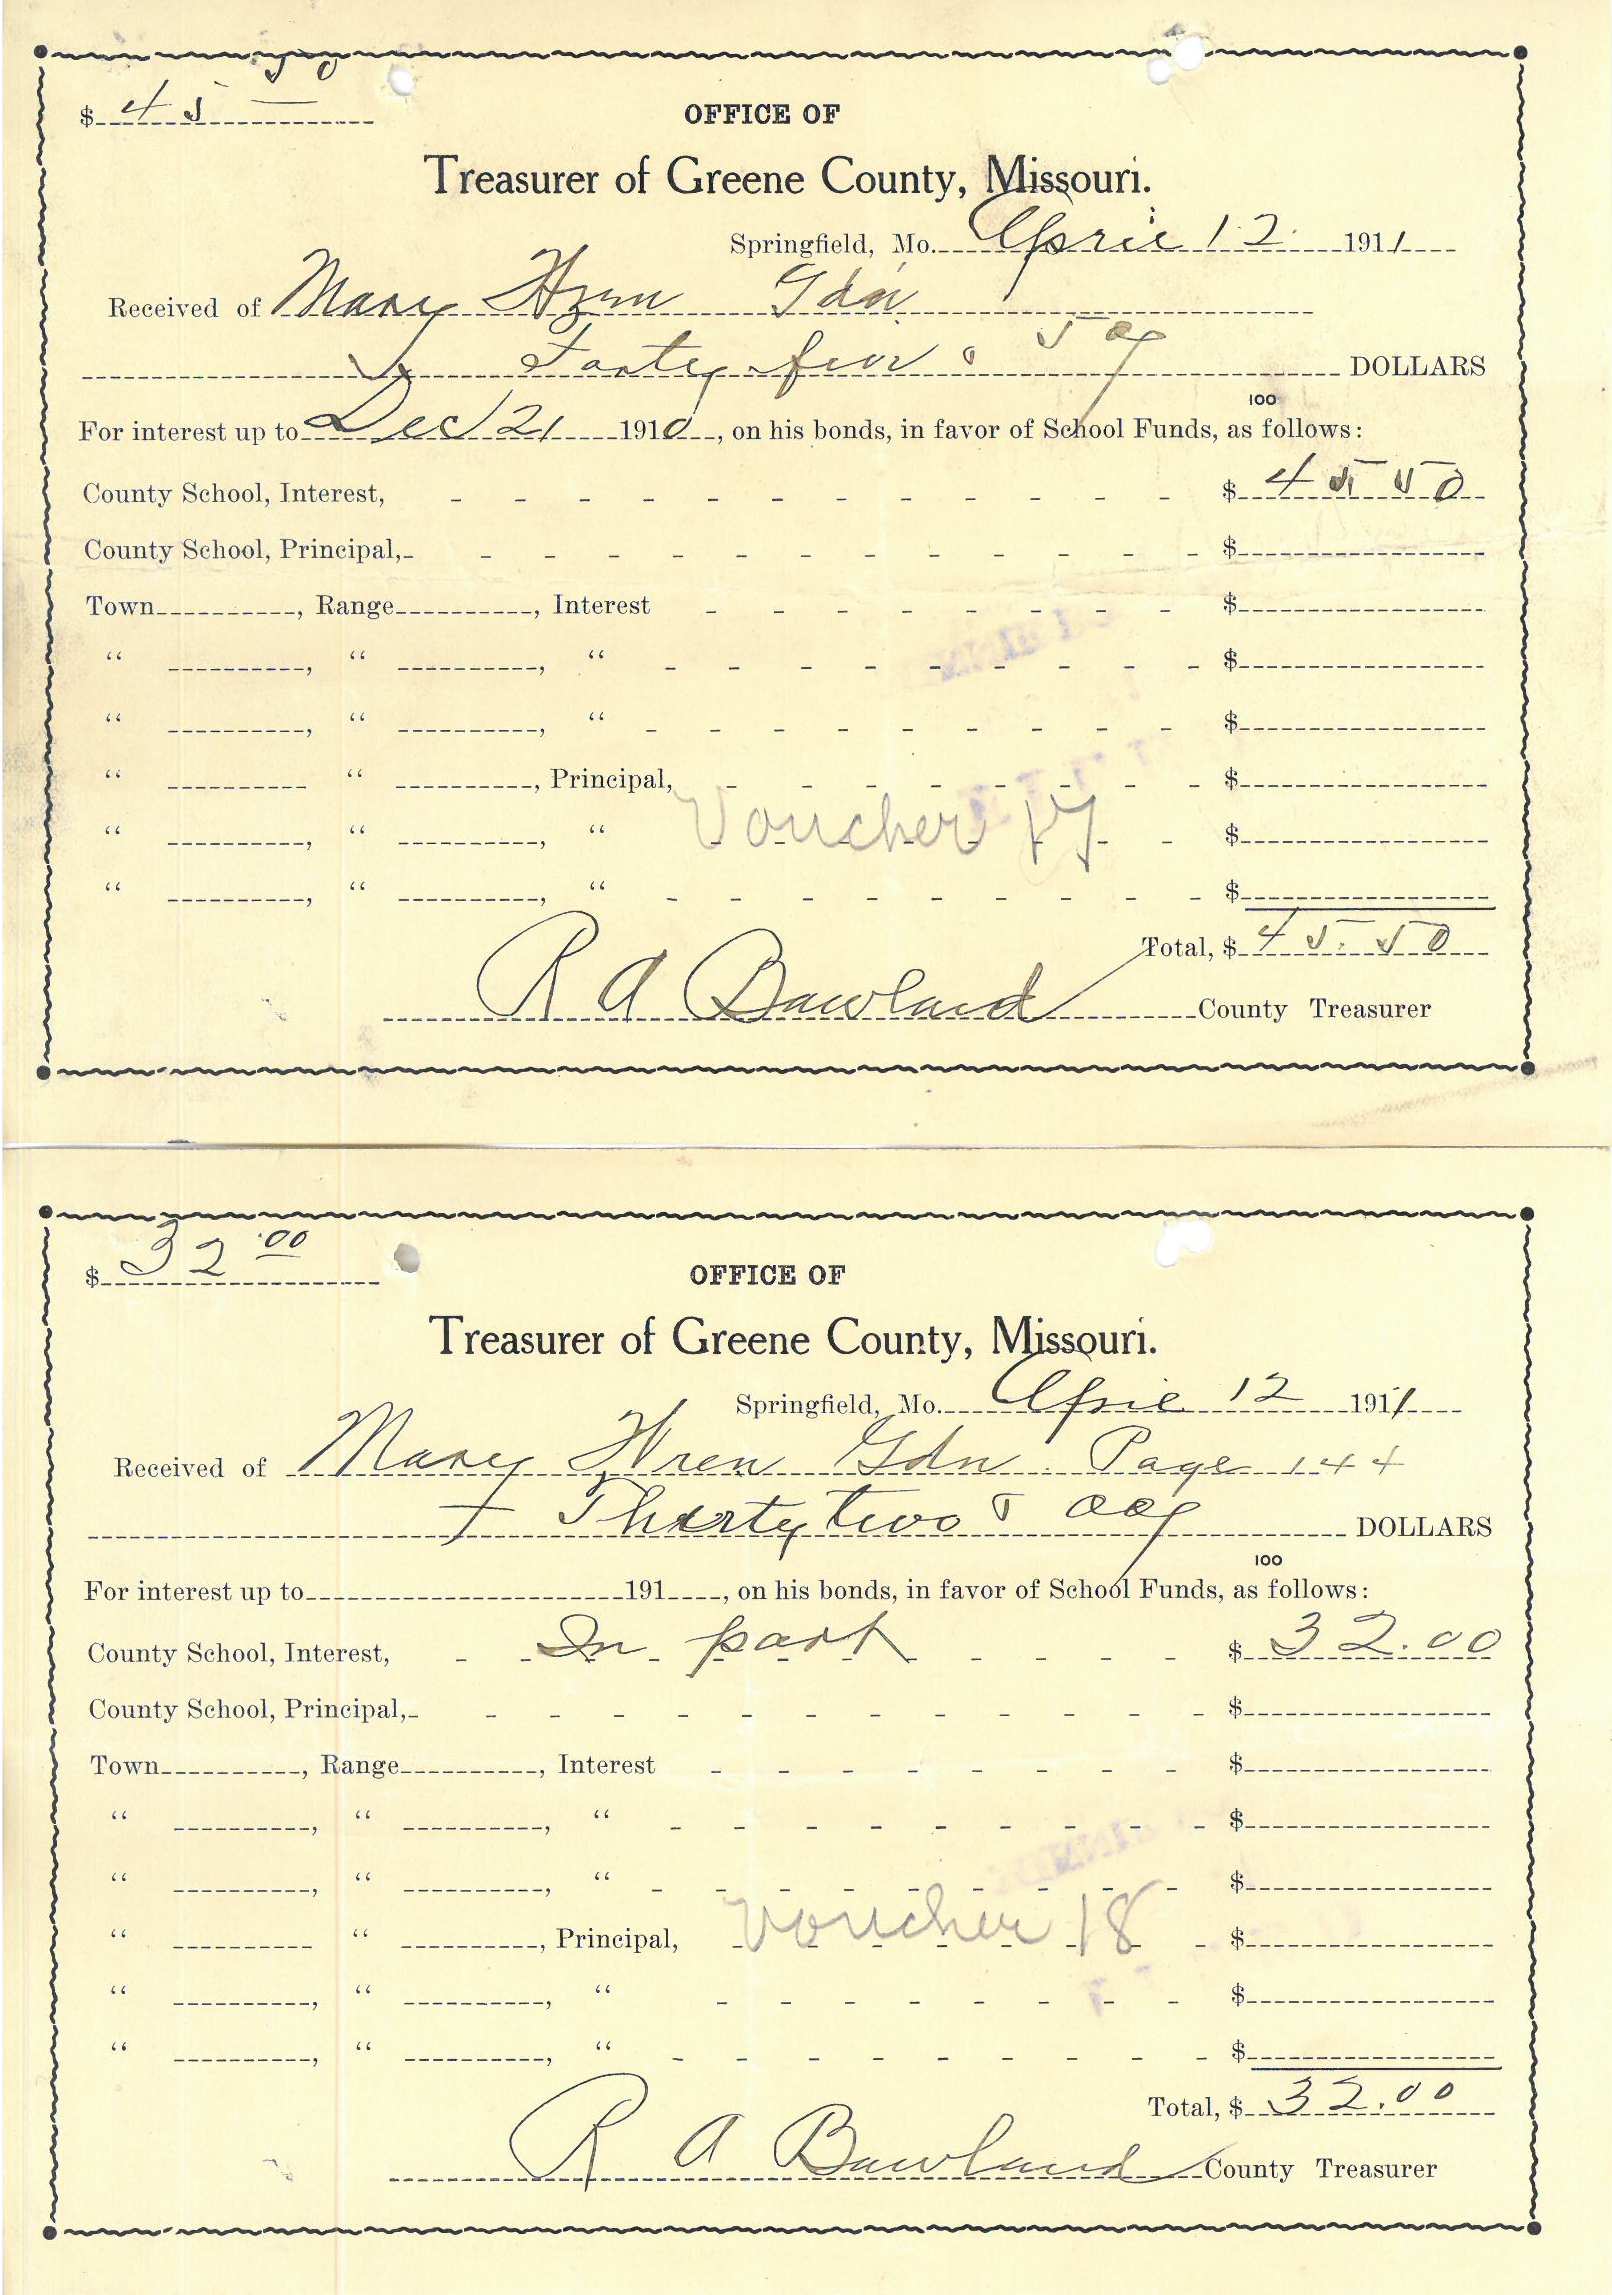 $ 45 50
OFFICE OF
Treasurer of Greene County, Missouri.
Springfield, Mo. April 12 1911
Received of Mary Wren Gdn
Forty five & 50 DOLLARS
100
For interest up to Dec 21 1910, on his bonds, in favor of School Funds, as follows:
County School, Interest, - - - - - - - - - - - - $ 45 50
County School, Principal, - - - - - - - - - - - - $
Town , Range , Interest - - - - - - - - $
“ , “ , “ - - - - - - - - - $
“ , “ , “ - - - - - - - - - $
“ “ , Principal, - - - - - - - - $
“ , “ , “ Voucher 17 - - $
“ , “ , “ - - - - - - - - - $
Total, $ 45.50
R A Bowland County Treasurer
$ 32 00
OFFICE OF
Treasurer of Greene County, Missouri.
Springfield, Mo. April 12 1911
Received of Mary Wren Gdn. Page 144
Thirty two & 00 DOLLARS
100
For interest up to 191 , on his bonds, in favor of School Funds, as follows:
County School, Interest, - - In part - - - - $ 32.00
County School, Principal, - - - - - - - - - - - - $
Town , Range , Interest - - - - - - - - $
“ , “ , “ - - - - - - - - - $
“ , “ , “ - - - - - - - - - $
“ “ , Principal, Voucher 18 - $
“ , “ , “ - - - - - - - - $
“ , “ , “ - - - - - - - - - $
Total, $ 32.00
R A Bowland County Treasurer